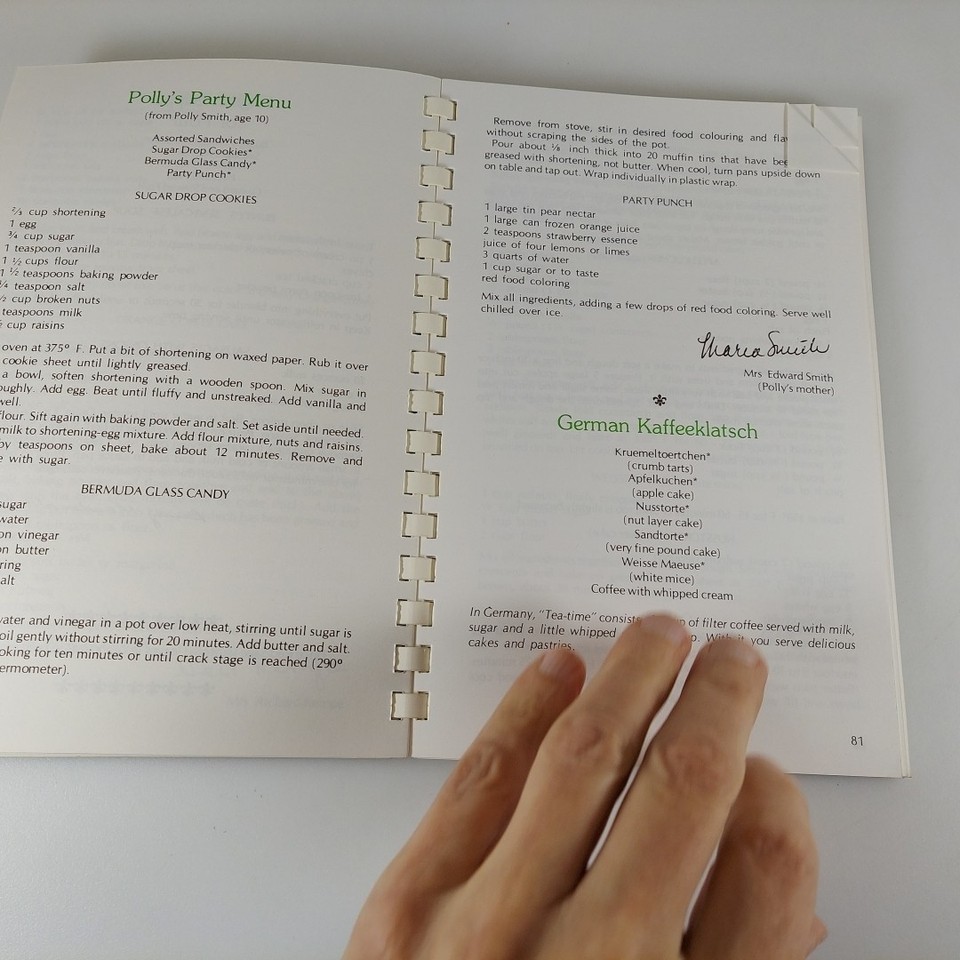 Polly's Party Menu
(from Polly Smith, age 10)
Assorted Sandwiches
Sugar Drop Cookies*
Bermuda Glass Candy*
Party Punch*
SUGAR DROP COOKIES
⅔ cup shortening
1 egg
¾ cup sugar
1 teaspoon vanilla
1 ½ cups flour
1 ½ teaspoons baking powder
teaspoon salt
cup broken nuts
teaspoons milk
cup raisins
oven at 375° F. Put a bit of shortening on waxed paper. Rub it over
cookie sheet until lightly greased.
a bowl, soften shortening with a wooden spoon. Mix sugar in
Add egg. Beat until fluffy and unstreaked. Add vanilla and
flour. Sift again with baking powder and salt. Set aside until needed.
milk to shortening-egg mixture. Add flour mixture, nuts and raisins.
by teaspoons on sheet, bake about 12 minutes. Remove and
with sugar.
BERMUDA GLASS CANDY
sugar
water
vinegar
butter
salt
water and vinegar in a pot over low heat, stirring until sugar is
gently without stirring for 20 minutes. Add butter and salt.
for ten minutes or until crack stage is reached (290°
Remove from stove, stir in desired food colouring and
without scraping the sides of the pot.
Pour about ⅛ inch thick into 20 muffin tins that have
greased with shortening, not butter. When cool, turn pans upside down
on table and tap out. Wrap individually in plastic wrap.
PARTY PUNCH
1 large tin pear nectar
1 large can frozen orange juice
2 teaspoons strawberry essence
juice of four lemons or limes
3 quarts of water
1 cup sugar or to taste
red food coloring
Mix all ingredients, adding a few drops of red food coloring. Serve well
chilled over ice.
Maria Smith
Mrs Edward Smith
(Polly's mother)
German Kaffeeklatsch
Kruemeltoertchen*
(crumb tarts)
Apfelkuchen*
(apple cake)
Nusstorte*
(nut layer cake)
Sandtorte*
(very fine pound cake)
Weisse Maeuse*
(white mice)
Coffee with whipped cream
In Germany, "Tea-time" of filter coffee served with milk,
sugar and a little whipped you serve delicious
cakes and pastries.
81